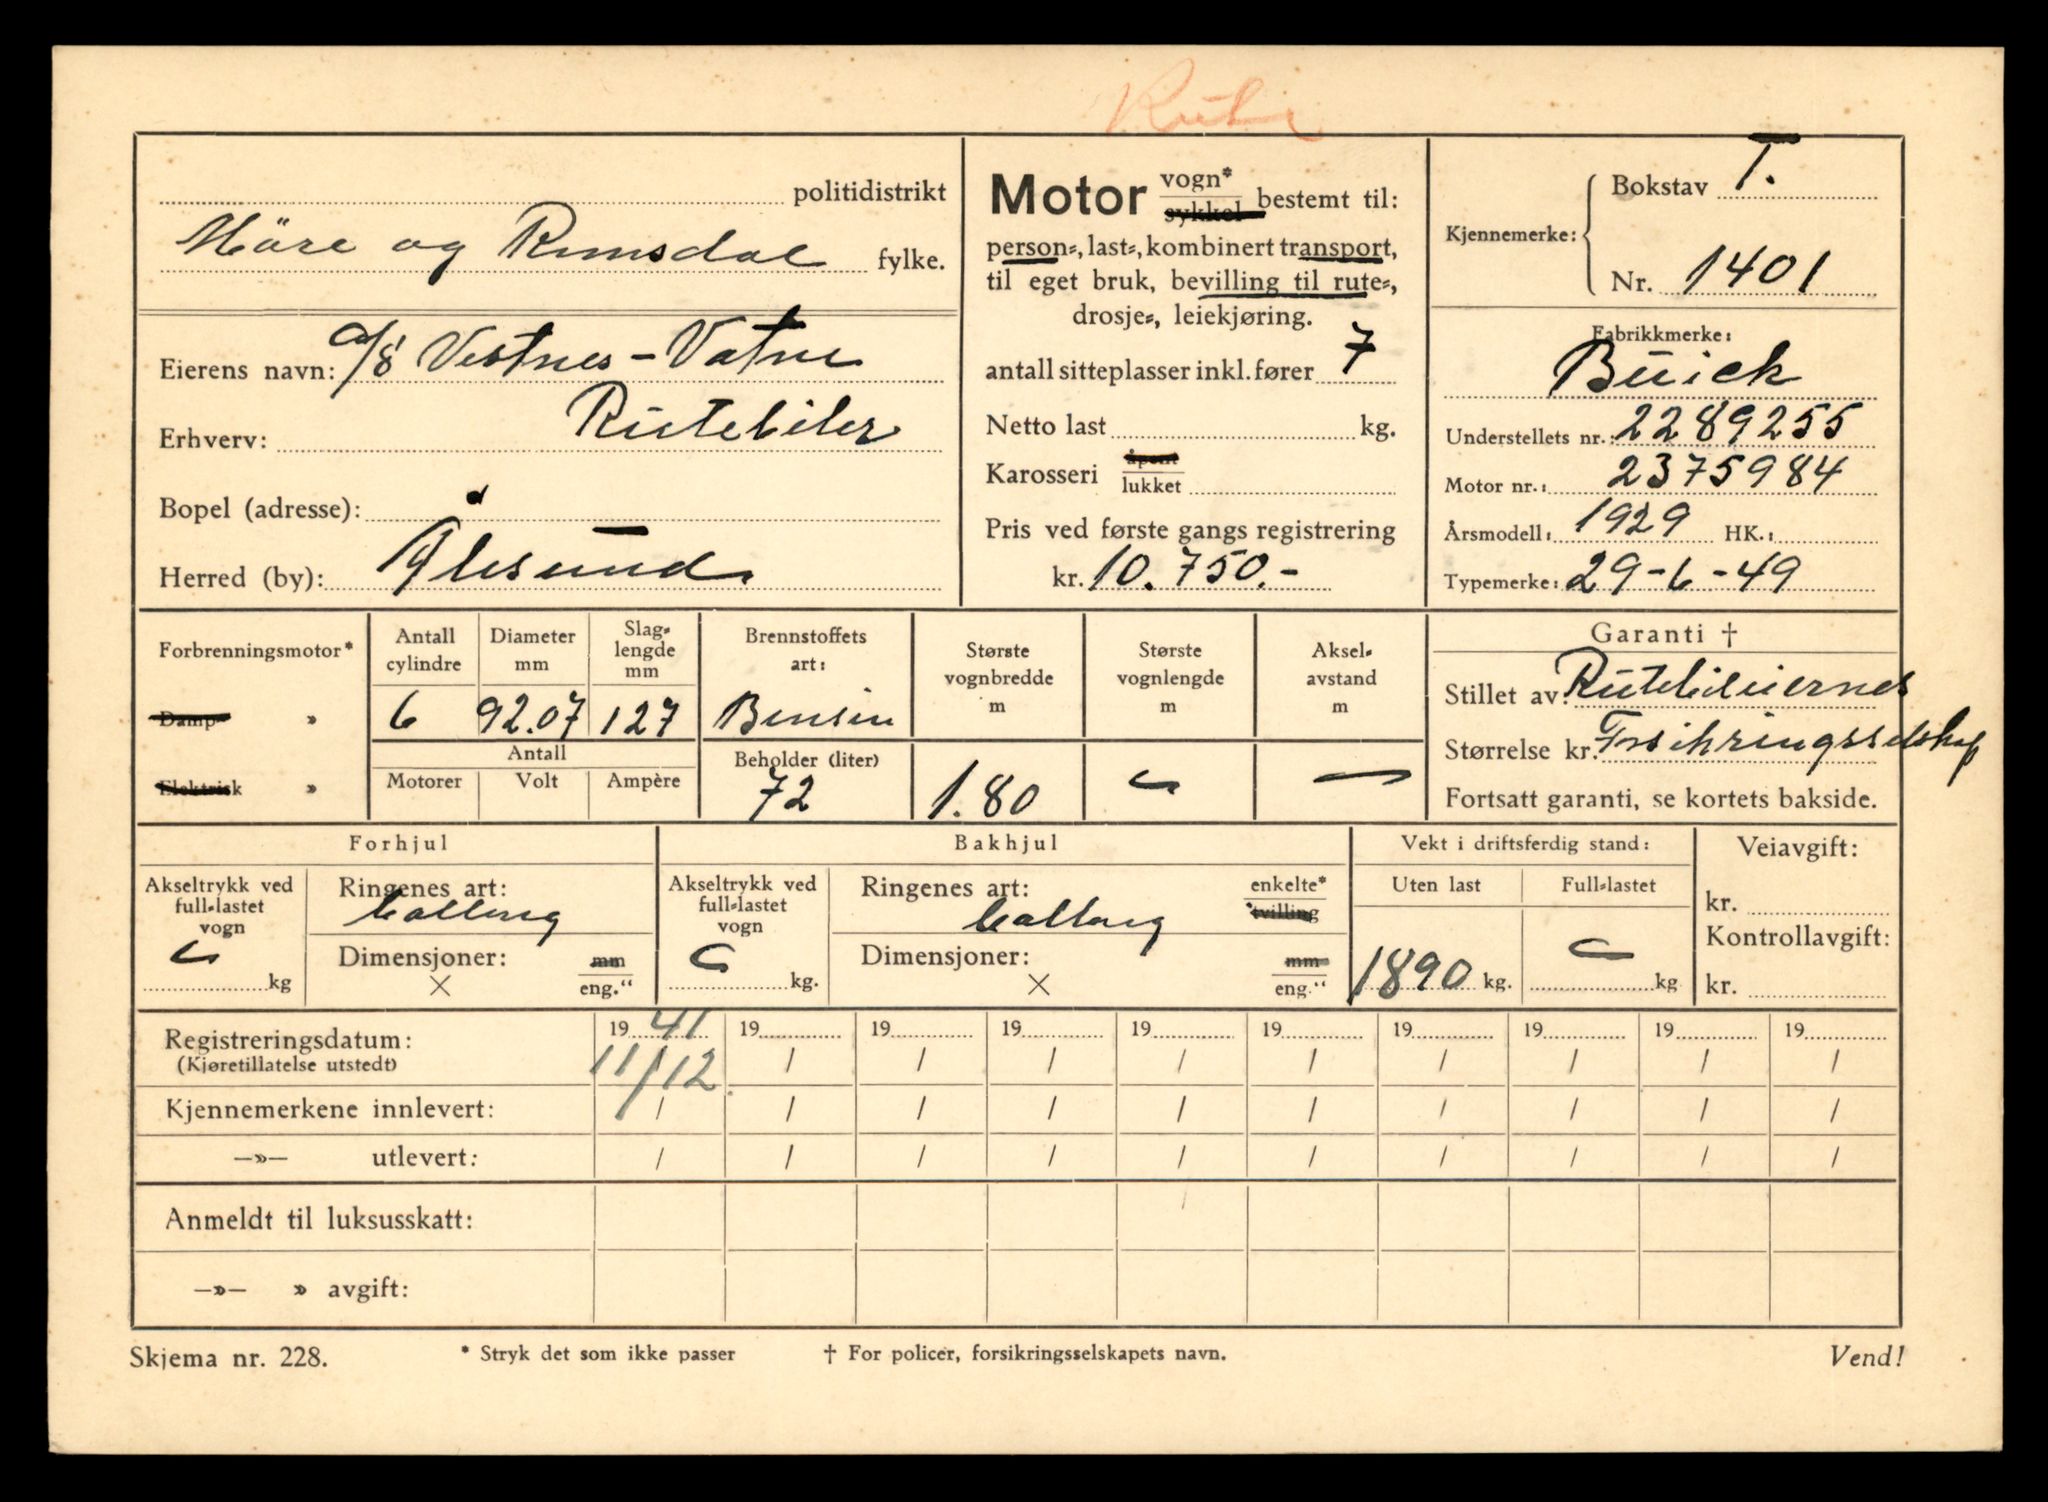 Rute
politidistrikt
Möre og Romsdal fylke.
Eierens navn: a/s Vestnes-Vatne
Erhverv: Rutebiler
Bopel (adresse):
Herred (by): Ålesund
Motor vogn* sykkel bestemt til:
person-, last-, kombinert transport,
til eget bruk, bevilling til rute-,
drosje-, leiekjøring.
antall sitteplasser inkl. fører 7
Netto last kg.
Karosseri åpent lukket
Pris ved første gangs registrering
kr. 10.750.-
Kjennemerke: Bokstav T.
Nr. 1401
Fabrikkmerke:
Buick
Understellets nr.: 2289255
Motor nr.: 2375984
Årsmodell: 1929 HK.:
Typemerke: 29-6-49
Forbrenningsmotor*
Damp- »
Elektrisk »
Antall cylindre
6
Diameter mm
92.07
Slag-lengde mm
127
Antall
Motorer Volt Ampère
Brennstoffets art:
Bensin
Beholder (liter)
72
Største vognbredde m
1.80
Største vognlengde m
Aksel-avstand m
Garanti †
Stillet av: Rutebileiernes
Størrelse kr. Forsikringsselskap
Fortsatt garanti, se kortets bakside.
Forhjul
Akseltrykk ved full-lastet vogn
kg
Ringenes art:
Dimensjoner: mm eng."
×
Bakhjul
Akseltrykk ved full-lastet vogn
kg.
Ringenes art: enkelte* tvilling
Dimensjoner: mm eng."
×
Vekt i driftsferdig stand:
Uten last
1890 kg.
Full-lastet
kg
Veiavgift:
kr.
Kontrollavgift:
kr.
Registreringsdatum: 19 41 19 19 19 19 19 19 19 19 19
(Kjøretillatelse utstedt) 11/12 / / / / / / / / /
Kjennemerkene innlevert: / / / / / / / / / /
—»— utlevert: / / / / / / / / / /
Anmeldt til luksusskatt:
—»— » avgift:
Skjema nr. 228. * Stryk det som ikke passer † For policer, forsikringsselskapets navn. Vend!